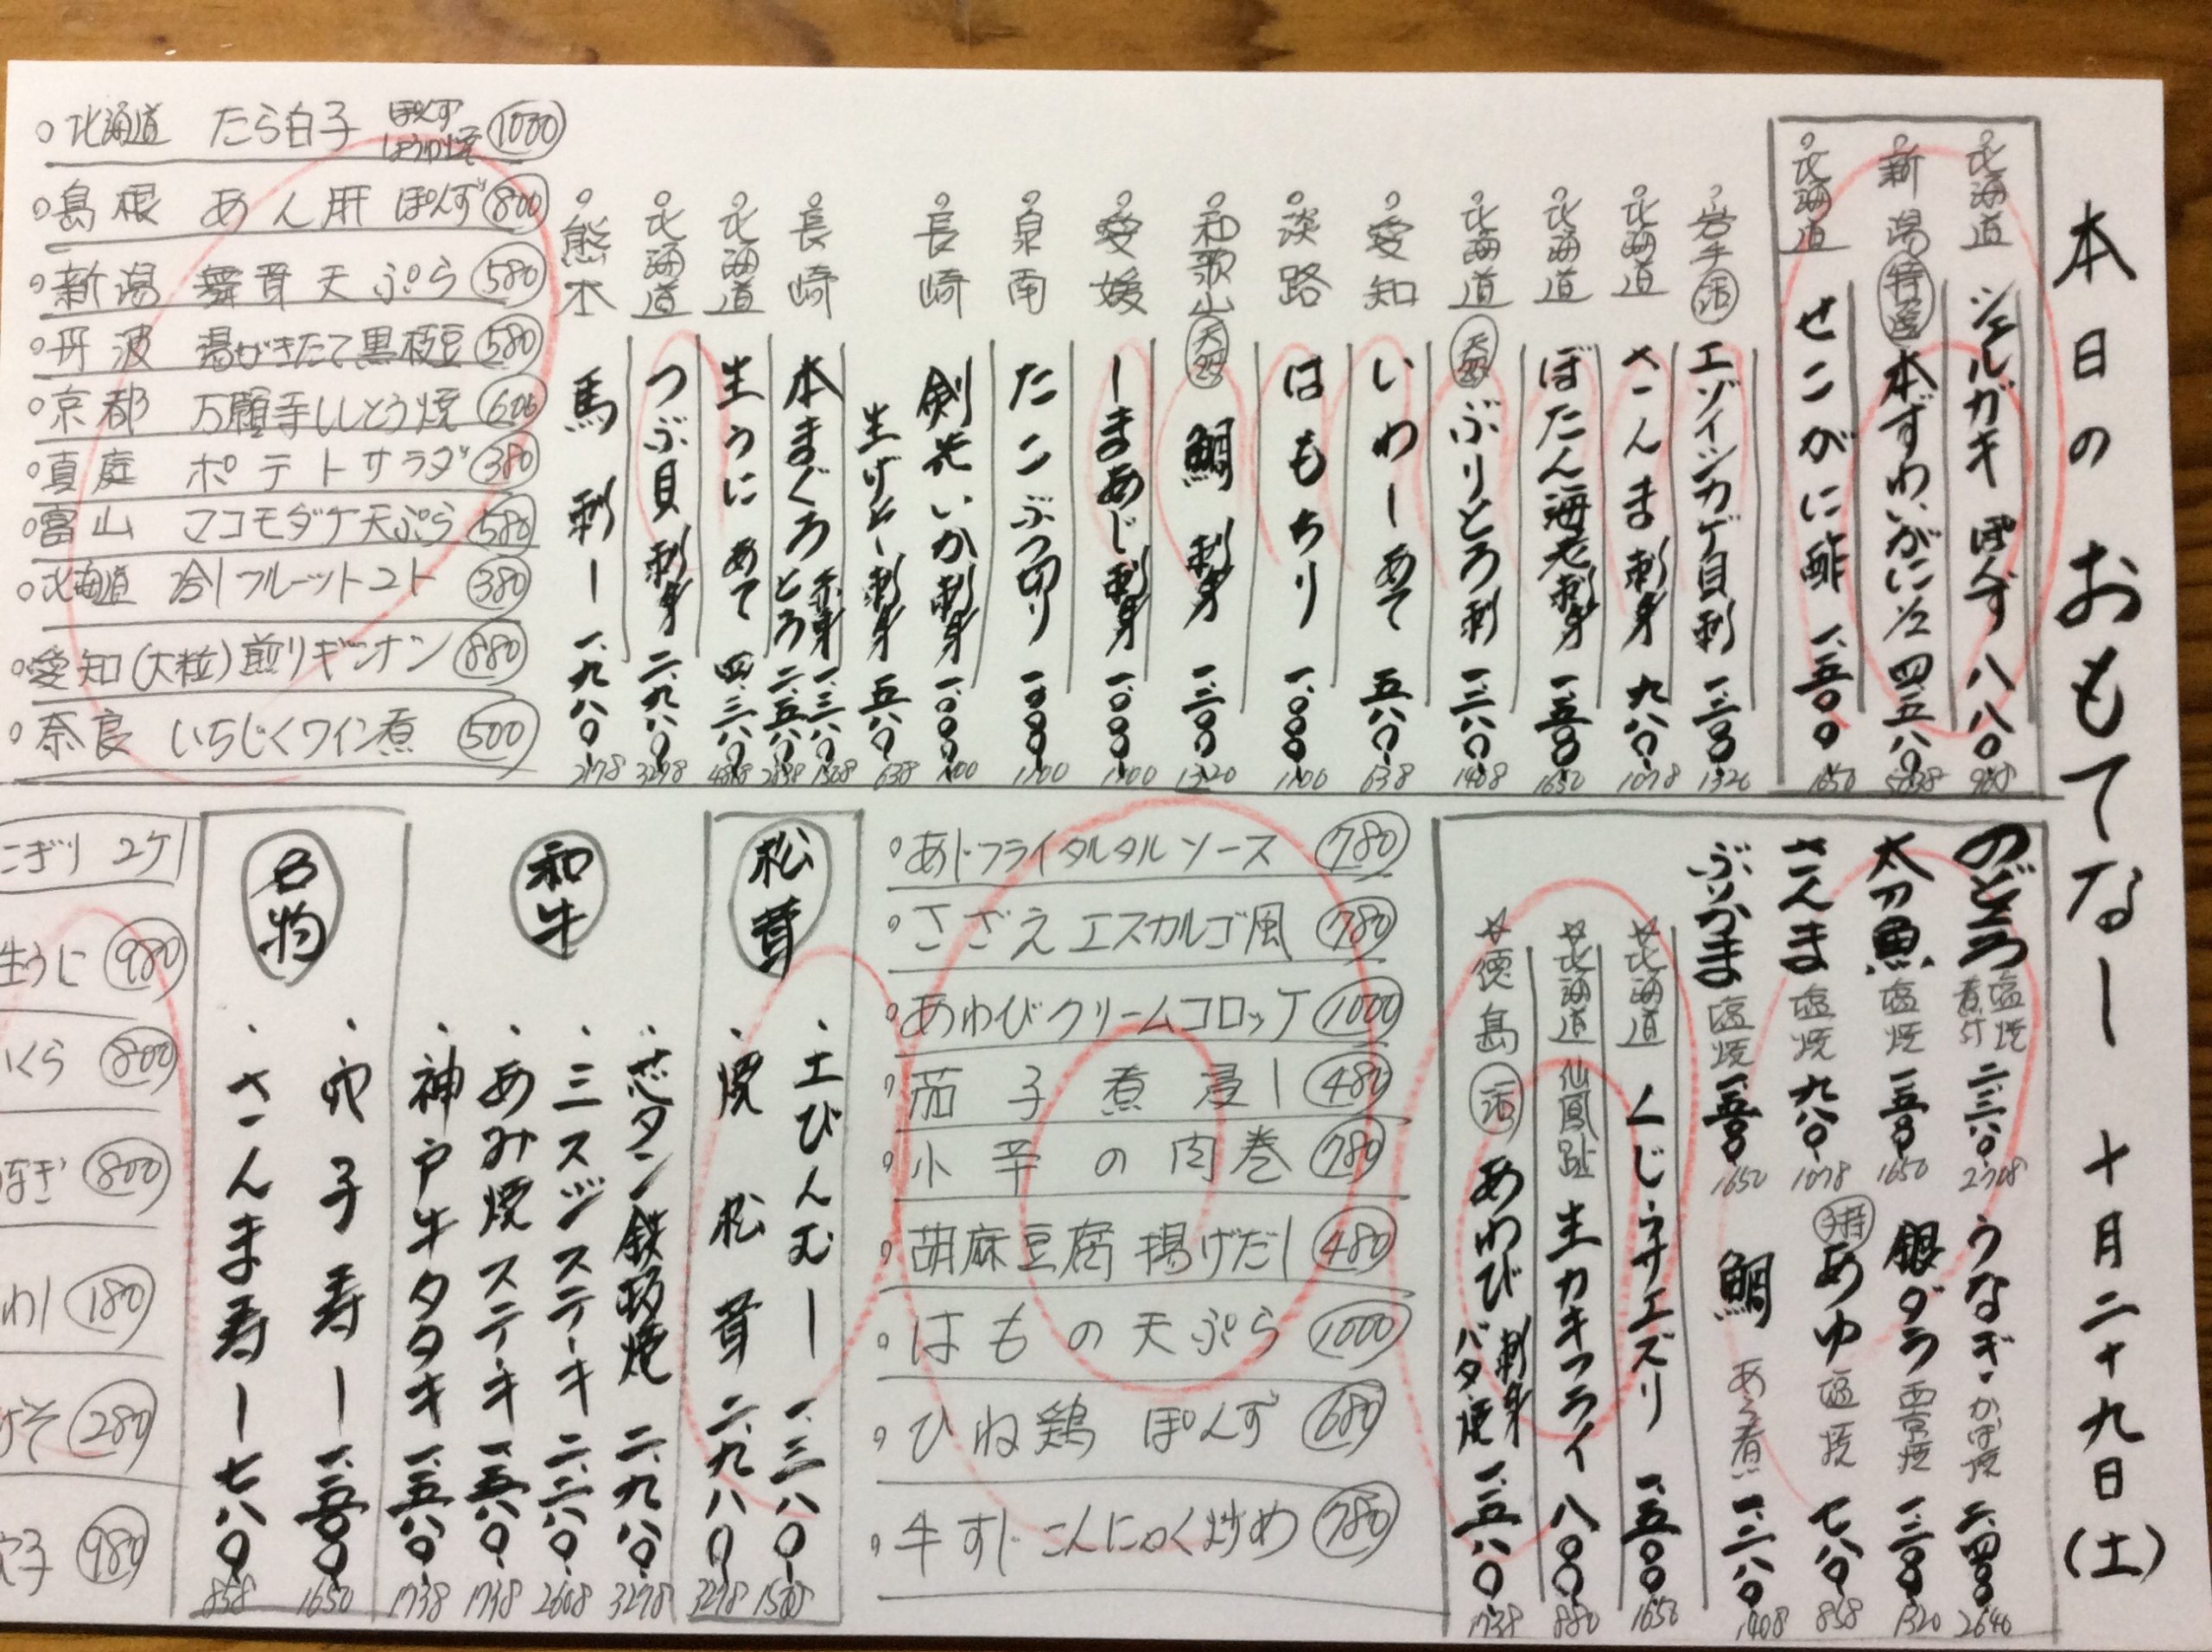 本日のおもてなし 十月二十九日(土)
北海道 シェルガキ ぽんず 八八〇 968
新潟 特選 本ずわいがに½ 四五八〇 5038
北海道 せこがに酢 一、五〇〇 1650
岩手 活 エゾイシカゲ貝刺 一、二〇〇 1320
北海道 さんま刺身 九八〇 1078
北海道 ぼたん海老刺身 一、五〇〇 1650
北海道 天然 ぶりとろ刺 一、二八〇 1408
愛知 いわしあて 五八〇 638
淡路 はもちり 一、〇〇〇 1100
和歌山 天然 鯛 刺身 一、二〇〇 1320
愛媛 しまあじ刺身 一、〇〇〇 1100
泉南 たこぶつ切り 一、〇〇〇 1100
長崎 剣先いか刺身 一、〇〇〇 1100
生げそ刺身 五八〇 638
長崎 本まぐろ 赤身 一、三八〇 1518
とろ 二、五八〇 2838
北海道 生うにあて 四、三八〇 4818
北海道 つぶ貝刺身 二、九八〇 3278
熊本 馬刺し 一、九八〇 2178
北海道 たら白子 ぽんず 1080
島根 あん肝 ぽんず 800
新潟 舞茸天ぷら 580
丹波 湯がきたて黒枝豆 580
京都 万願寺ししとう焼 600
真庭 ポテトサラダ 380
富山 マコモダケ天ぷら 580
北海道 冷しフルーツトマト 380
愛知(大粒)煎りギンナン 880
奈良 いちじくワイン煮 500
のどぐろ 塩焼 煮付 二、三八〇 2708
太刀魚 塩焼 一、五〇〇 1650
さんま 塩焼 九八〇 1078
ぶりかま 塩焼 一、五〇〇 1650
うなぎ かば焼 二、四〇〇 2640
銀ダラ 西京焼 一、二〇〇 1320
子持 あゆ 塩焼 七八〇 858
鯛 あら煮 一、二八〇 1408
☆北海道 くじらサエズリ 一、五〇〇 1650
☆北海道 仙鳳趾 生カキフライ 八〇〇 880
☆徳島 活 あわび 刺身 バター焼 一、五八〇 1738
あじフライタルタルソース 780
さざえエスカルゴ風 780
あわびクリームコロッケ 1000
茄子煮浸し 480
小芋の肉巻 780
胡麻豆腐揚げだし 480
はもの天ぷら 1000
ひね鶏 ぽんず 680
牛すじこんにゃく炒め 780
松茸
土びんむし 一、三八〇 1518
焼松茸 二、九八〇 3278
和牛
芯タン鉄板焼 二、九八〇 3278
三スジステーキ 二、三八〇 2608
あみ焼ステーキ 一、五八〇 1738
神戸牛タタキ 一、五八〇 1738
名物
穴子寿し 一、五〇〇 1650
さんま寿し 七八〇 858
こぎり 2ケ
生うに 980
くら 800
なぎ 800
わし 180
げそ 280
穴子 980